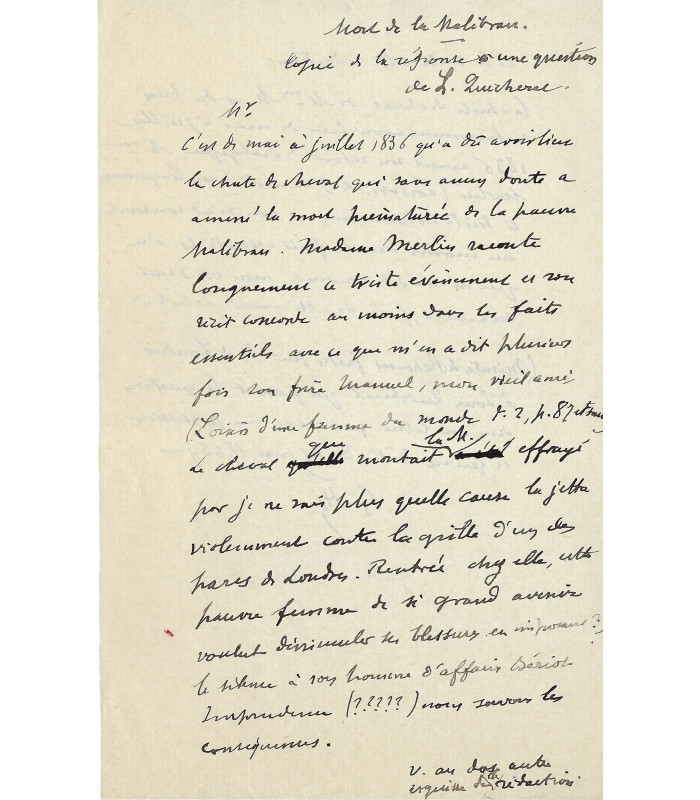 Mort de la Malibran.
Copie de la réponse à une question
de L. Quicherat.
Mr
C'est de mai à juillet 1836 qu'a dû avoir lieu
la chute de cheval qui sans aucun doute a
amené la mort prématurée de la pauvre
Malibran. Madame Merlin raconte
longuement ce triste événement et son
récit concorde au moins dans les faits
essentiels avec ce que m'en a dit plusieurs
fois son frère Manuel, mon vieil ami
(Loisirs d'une femme du monde t. 2, p. 87 et
Le cheval que qu'elle montait la M. effrayé
par je ne sais plus quelle cause la jetta
violemment contre la grille d'un des
parcs de Londres. Rentrée chez elle, cette
pauvre femme de si grand avenir
voulut dissimuler ses blessures en imposant ?,
le silence à son homme d'affaires Bériot
Imprudence (?????) nous savons les
conséquences.
V. au dos autre
esquisse de rédaction